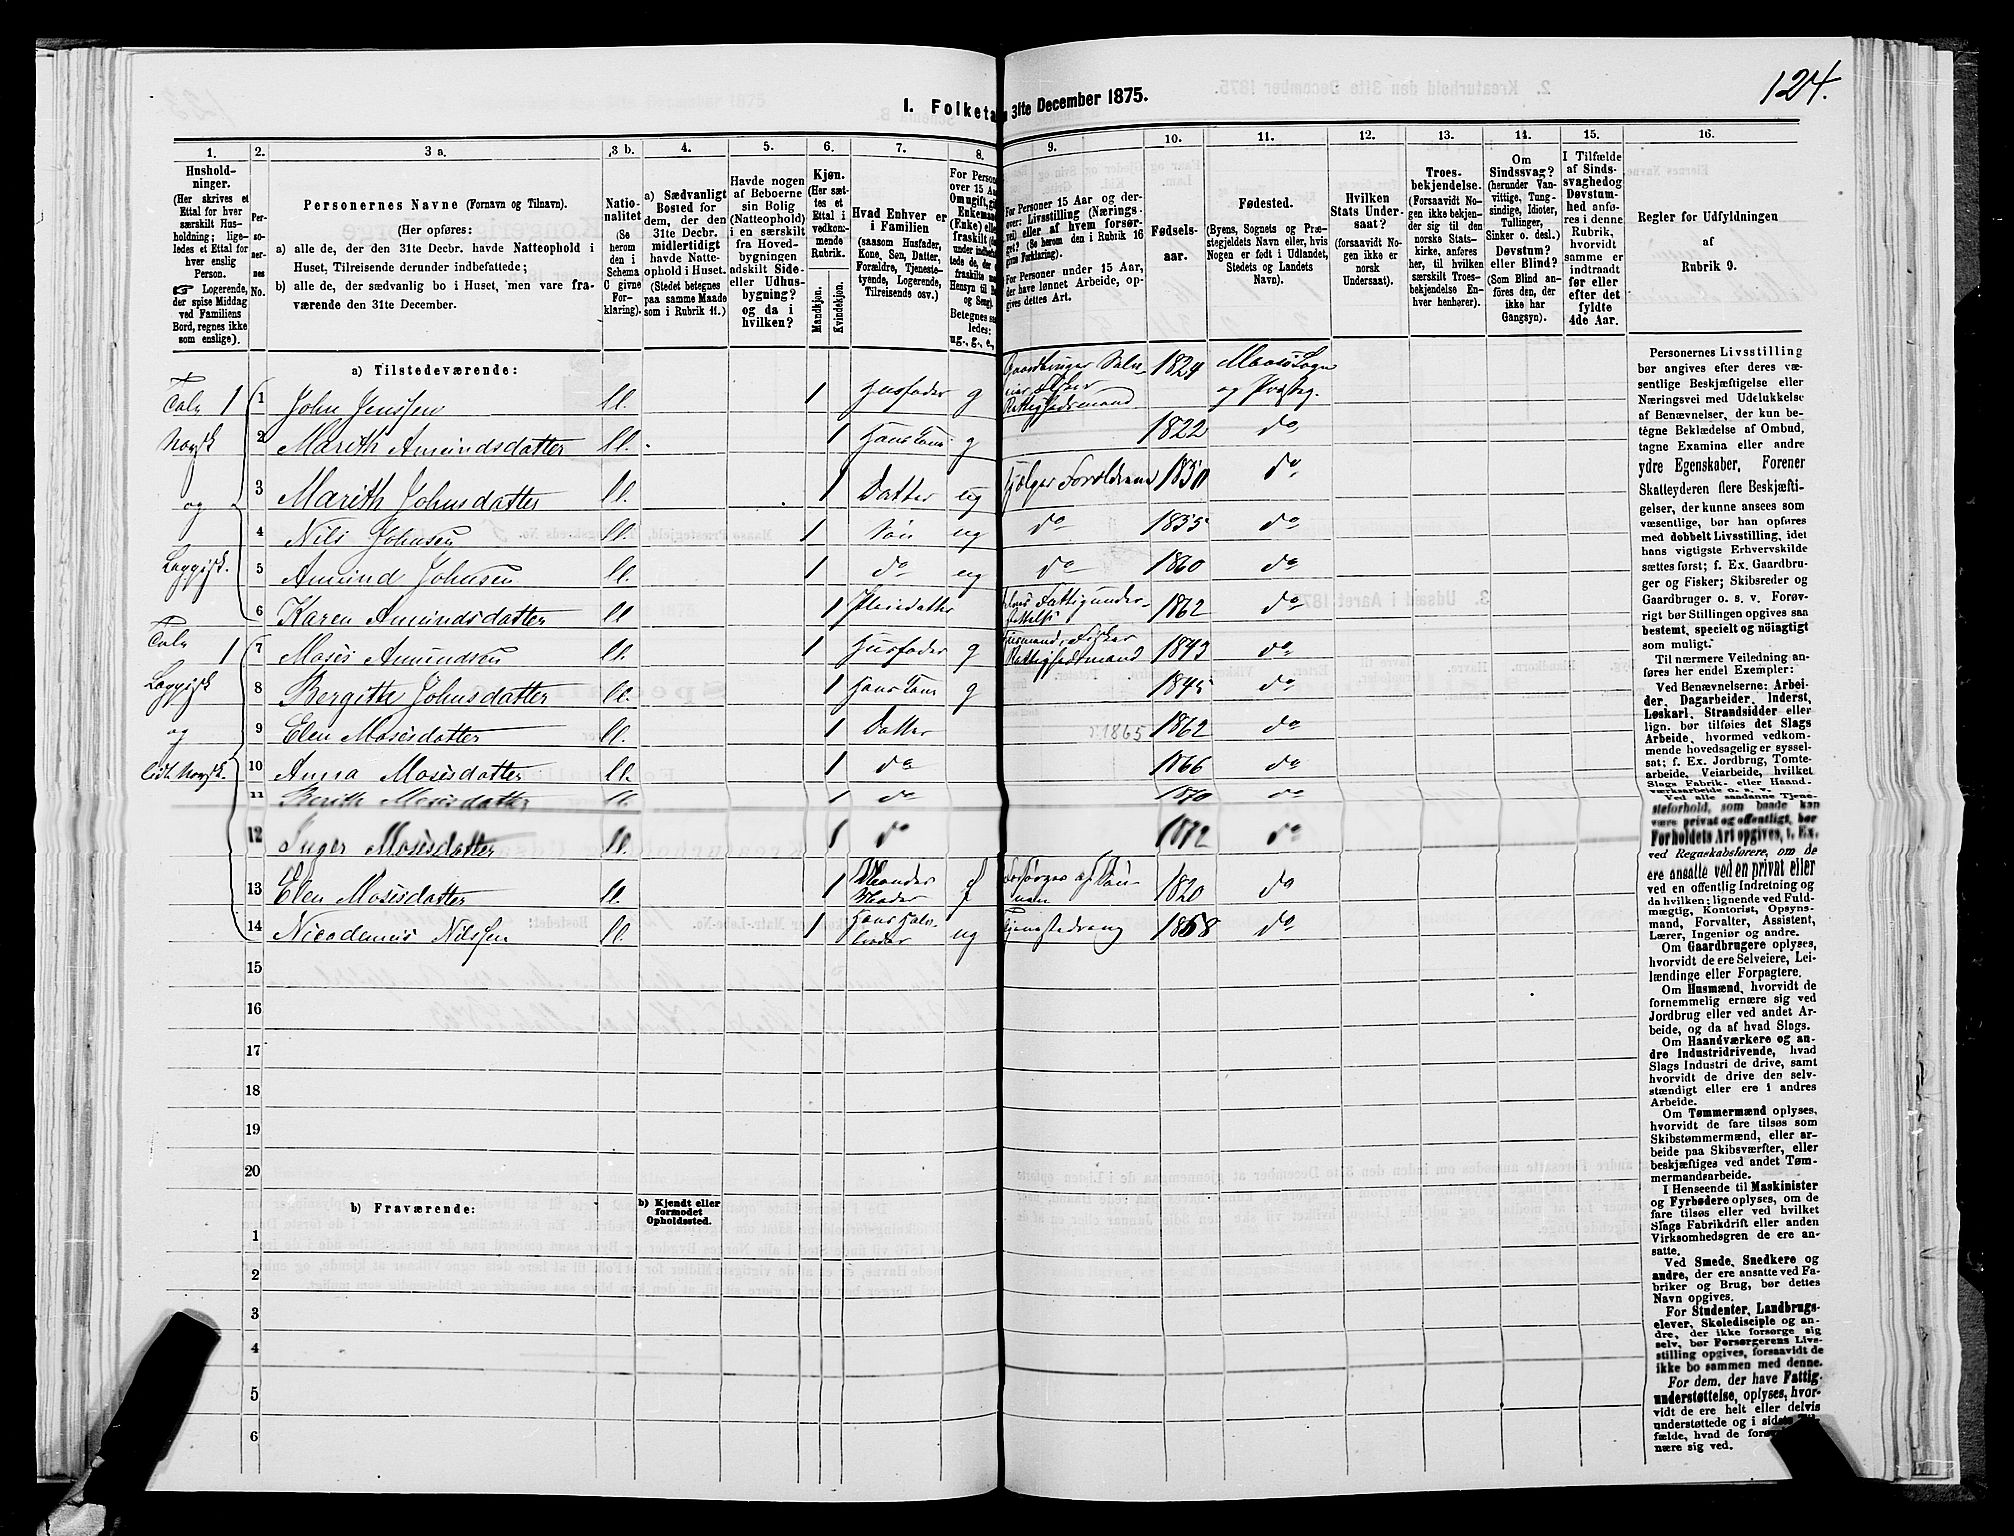 124.
I. Folketa n 31te December 1875.
1. 2. 3 a. 3 b. 4. 5. 6. 7. 8. 9. 10. 11. 12. 13. 14. 15. 16.
Hushold-
ninger.
(Her skrives et
Ettal for hver
særskilt Hus-
holdning; lige-
ledes et Ettal for
hver enslig
Person.
☞ Logerende,
der spise Middag
ved Familiens
Bord, regnes ikke
som enslige).
Per-
so-
ner-
nes
No.
Personernes Navne (Fornavn og Tilnavn).
(Her opføres:
a) alle de, der den 31te Decbr. havde Natteophold i
Huset, Tilreisende derunder indbefattede;
b) alle de, der sædvanlig bo i Huset, men vare fra-
værende den 31te December.
Natio-
nalitet
(Se
herom
den i
Schema
C givne
For-
klaring).
a) Sædvanligt
Bosted for
dem, der den
31te Decbr.
midlertidigt
havde Natte-
ophold i Huset.
(Stedet betegnes
paa samme Maade
som i Rubrik 11.)
Havde nogen
af Beboerne
sin Bolig
(Natteophold)
i en særskilt
fra Hoved-
bygningen
adskilt Side-
eller Udhus-
bygning?
og da i
hvilken?
Kjøn.
(Her sæt-
tes et
Ettal i
vedkom-
mende
Rubrik.
Mandkjøn.
Kvindekjøn.
Hvad Enhver er
i Familien
(saasom Husfader,
Kone, Søn, Datter,
Forældre, Tjeneste-
tyende, Logerende,
Tilreisende osv.)
For Persone
over 15 Aa
Om ugift, gi
Enkema
(Enke) el
fraskilt
Betegnes saa
ledes:
ug., g., e.,
For Personer 15 Aar og der-
over: Livsstilling (Nærings-
vei) eller af hvem forsør-
get? (Se herom den i Rubrik 16
givne Forklaring).
For Personer under 15 Aar,
der have lønnet Arbeide, op-
gives dettes Art.
Fødsels-
aar.
Fødested.
(Byens, Sognets og Præ-
stegjeldets Navn eller, hvis
Nogen er født i Udlandet,
Stedets og Landets
Navn).
Hvilken
Stats Under-
saat?
(forsaavidt No-
gen ikke er
norsk
Undersaat).
Troes-
bekjendelse.
(Forsaavidt No-
gen ikke bekjen-
der sig til den
norske Stats-
kirke, anføres
her, til hvilken
særskilt Troes-
bekjendelse En-
hver henhører).
Om
Sindssvag?
(herunder Van-
vittige, Tung-
sindige, Idioter,
Tullinger,
Sinker o. desl.)
Døvstum?
eller Blind?
(Som Blind an-
føres den, der
ikke har
Gangsyn).
I Tilfælde
af Sinds-
svaghed og
Døvstum-
hed anfø-
res i denne
Rubrik,
hvorvidt
samme er
indtraadt
før eller
efter det
fyldte
4de Aar.
Regler for Udfyldningen
af
Rubrik 9.
a) Tilstedeværende:
Tale 1 1 John Jenssen ll. 1 Husfader g Gaardbruger Selv-
eier Fisker
Rettighedsmand 1824 Maasö Sogn
og Præsteg.
Norsk 2 Marith Amundsdatter ll. 1 Hans Kone g 1822 do
3 Marith Johnsdatter ll. 1 Datter ug hjælper Forældrene 1850 do
og 4 Nils Johnsen ll. 1 Sön ug do 1855 do
Lappisk. 5 Amund Johnsen ll. 1 do ug do 1860 do
6 Karen Amundsdatter ll 1 Pleiedatter 1862 do
Tale 1 7 Moses Amundsen ll. 1 Husfader g Husmand, Fisker
Rettighedsmand 1843 do
Lappisk 8 Bergitte Johnsdatter ll. 1 Hans Kone g 1845 do
og 9 Elen Mosesdatter ll. 1 Datter ?: 1865 1862 do
lidt Norsk. 10 Anna Mosesdatter ll. 1 do 1866 do
11 Berith Mosesdatter ll. 1 do 1870 do
12 Inger Mosesdatter ll. 1 do 1872 do
13 Elen Mosesdatter ll. 1 Mandens
Moder f forsörges af Sön-
nen 1820 do
14 Nicodemus Nilssen ll. 1 ug Tjenestedreng 1858 do
15
16
17
18
19
20
b) Fraværende:
b) Kjendt eller
formodet
Opholdssted.
1
2
3
4
5
6
Personernes Livsstilling
bør angives efter deres væ-
sentlige Beskjæftigelse eller
Næringsvei med Udelukkelse
af Benævnelser, der kun be-
tegne Beklædelse af Ombud,
tagne Examina eller andre
ydre Egenskaber. Forener
Skatteyderen flere Beskjæfti-
gelser, der kunne ansees som
væsentlige, bør han opføres
med dobbelt Livsstilling, idet
hans vigtigste Erhvervskilde
sættes først; f. Ex. Gaardbru-
ger og Fisker; Skibsreder og
Gaardbruger o. s. v. Forøv-
rigt bør Stillingen opgives saa
bestemt, specielt og nöiagtigt
som muligt.
Til nærmere Veiledning an-
føres her endel Exempler:
Ved Benævnelserne: Arbei-
der, Dagarbeider, Inderst,
Løskarl, Strandsidder eller
lign. bør tilføies det Slags
Arbeide, hvormed vedkom-
mende hovedsagelig er syssel-
sat; f. Ex. Jordbrug, Tomte-
arbeide, Veiarbeide, hvilket
Slags Fabrik- eller Haand-
værksarbeide o. s. v.
Ved alle saadanne Tjene-
steforhold, som baade kan
være privat og offentligt, bør
Forholdets Art opgives, t. Ex.
ved Regnskabsførere, om de
ere ansatte ved en privat eller
ved en offentlig Indretning og
da hvilken; lignende ved Fuld-
mægtig, Kontorist, Opsyns-
mand, Forvalter, Assistent,
Lærer, Ingeniør og andre.
Om Gaardbrugere oplyses,
hvorvidt de ere Selveiere, Lei-
lændinge eller Forpagtere.
Om Husmænd, hvorvidt de
fornemmelig ernære sig ved
Jordbrug eller ved andet Ar-
beide, og da af hvad Slags.
Om Haandværkere og an-
dre Industridrivende, hvad
Slags Industri de drive, samt
hvorvidt de drive den selv-
stændigt eller ere i andres
Arbeide.
Om Tømmermænd oplyses,
hvorvidt de fare tilsøs som
Skibstømmermænd, eller ar-
beide paa Skibsværfter, eller
beskjæftiges ved andet Tøm-
mermandsarbeide.
I Henseende til Maskinister
og Fyrbødere oplyses, om de
fare tilsøs eller ved hvilket
Slags Fabrikdrift eller anden
Virksomhedsgren de ere an-
satte.
Ved Smede, Snedkere og
andre, der ere ansatte ved Fa-
briker og Brug, bør dettes
Navn opgives.
For Studenter, Landbrugs-
elever, Skoledisciple og an-
dre, der ikke forsørge sig
selv, bør Forsørgerens Livs-
stilling opgives, forsaavidt de
ikke bo sammen med denne.
For dem, der have Fattig-
understøttelse, oplyses, hvor-
vidt de ere helt eller delvis
understøttede og i sidste Til-
fælde, hvad de forøv
nære sig ved.